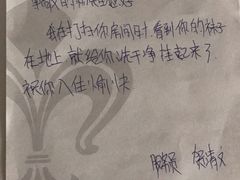 我在打扫你房间时,看到你的袜子
在地上 就给你洗干净挂起来了
祝你入住愉快
服务员